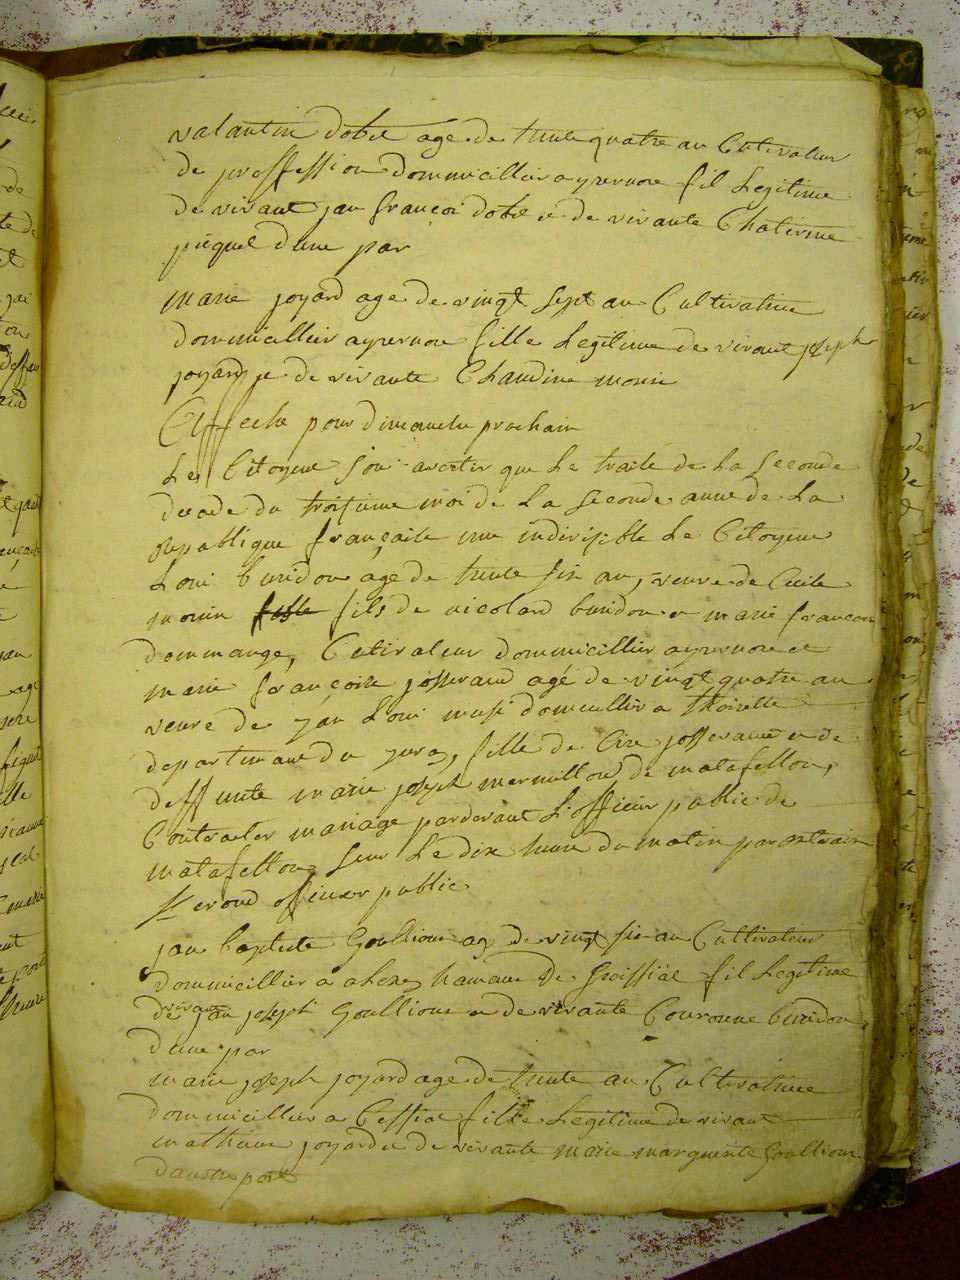 valantin dobé age de trente quatre an Cutivateur
de proffession dommicillier a yzernore fil Legitime
de vivant jan françoi dobé e de vivante Chaterine
piequel dune par
marie joyard age de vingt sept an Cultivatrice
dommicillier a yzernore fille Legitime de vivant joseph
joyard e de vivante Claudine monin
affeche pour dimanche prochain
Les Citoyene son avertir que Le traite de La seconde
decade du troisieme moi de La seconde anne de La
Republique française une indivisible Le Citoyene
Loui buridon age de trente six an, veuve de Cecile
monin fils de nicolard buridon e marie françoise
dommange, Cutivateur dommicillier a yzernore et
marie françoise josserand agé de vingt quatre an
veuve de jan Loui dommicillier a thoirette
departimant du jura, fille de josserand e de
deffunte marie joseph mermillon de matafellon,
Contracter mariage pardevant L'officier public de
matafellon sur Le dix heure du matin par
officier public
jan baptiste Goullioux ag de vingt six an Cultivateur
dommicillier a hamau de Groissiat fil Legitime
de vivant jan joseph Goullioux e de vivante Couronne buridon
dune par
marie joseph joyard age de trente an Cultivatrice
dommicillier a Cessiat fille Legitime de vivant
mathieu joyard e de vivante marie marguerite Goullioux
dautre part